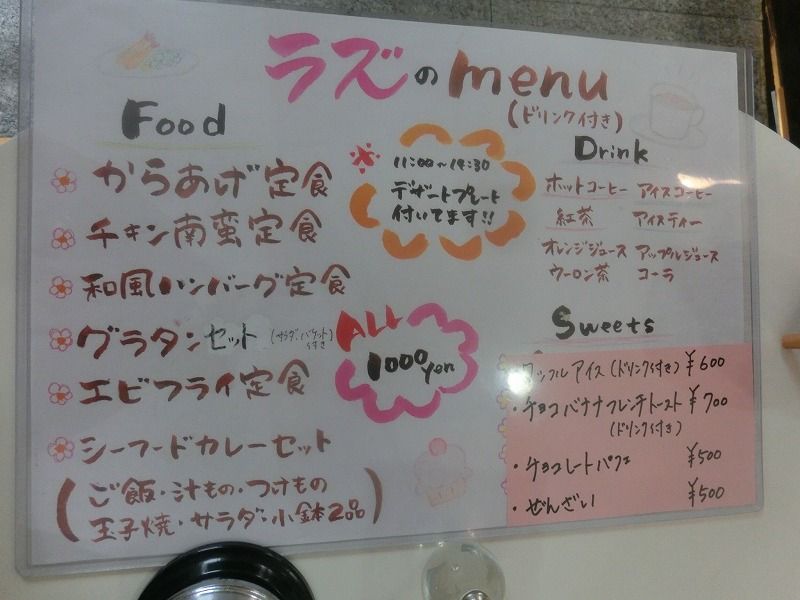 ラズのmenu
(ドリンク付き)
Food
からあげ定食
チキン南蛮定食
和風ハンバーグ定食
グラタンセット(サラダ、バケット付き)
エビフライ定食
シーフードカレーセット
(ご飯・汁もの・つけもの
玉子焼・サラダ・小鉢2品)
11:00~14:30
デザートプレート
付いてます!!
ALL
1000yen
Drink
ホットコーヒー アイスコーヒー
紅茶 アイスティー
オレンジジュース アップルジュース
ウーロン茶 コーラ
Sweets
ワッフルアイス(ドリンク付き) ¥600
・チョコバナナフレンチトースト ¥700
(ドリンク付き)
・チョコレートパフェ ¥500
・ぜんざい ¥500